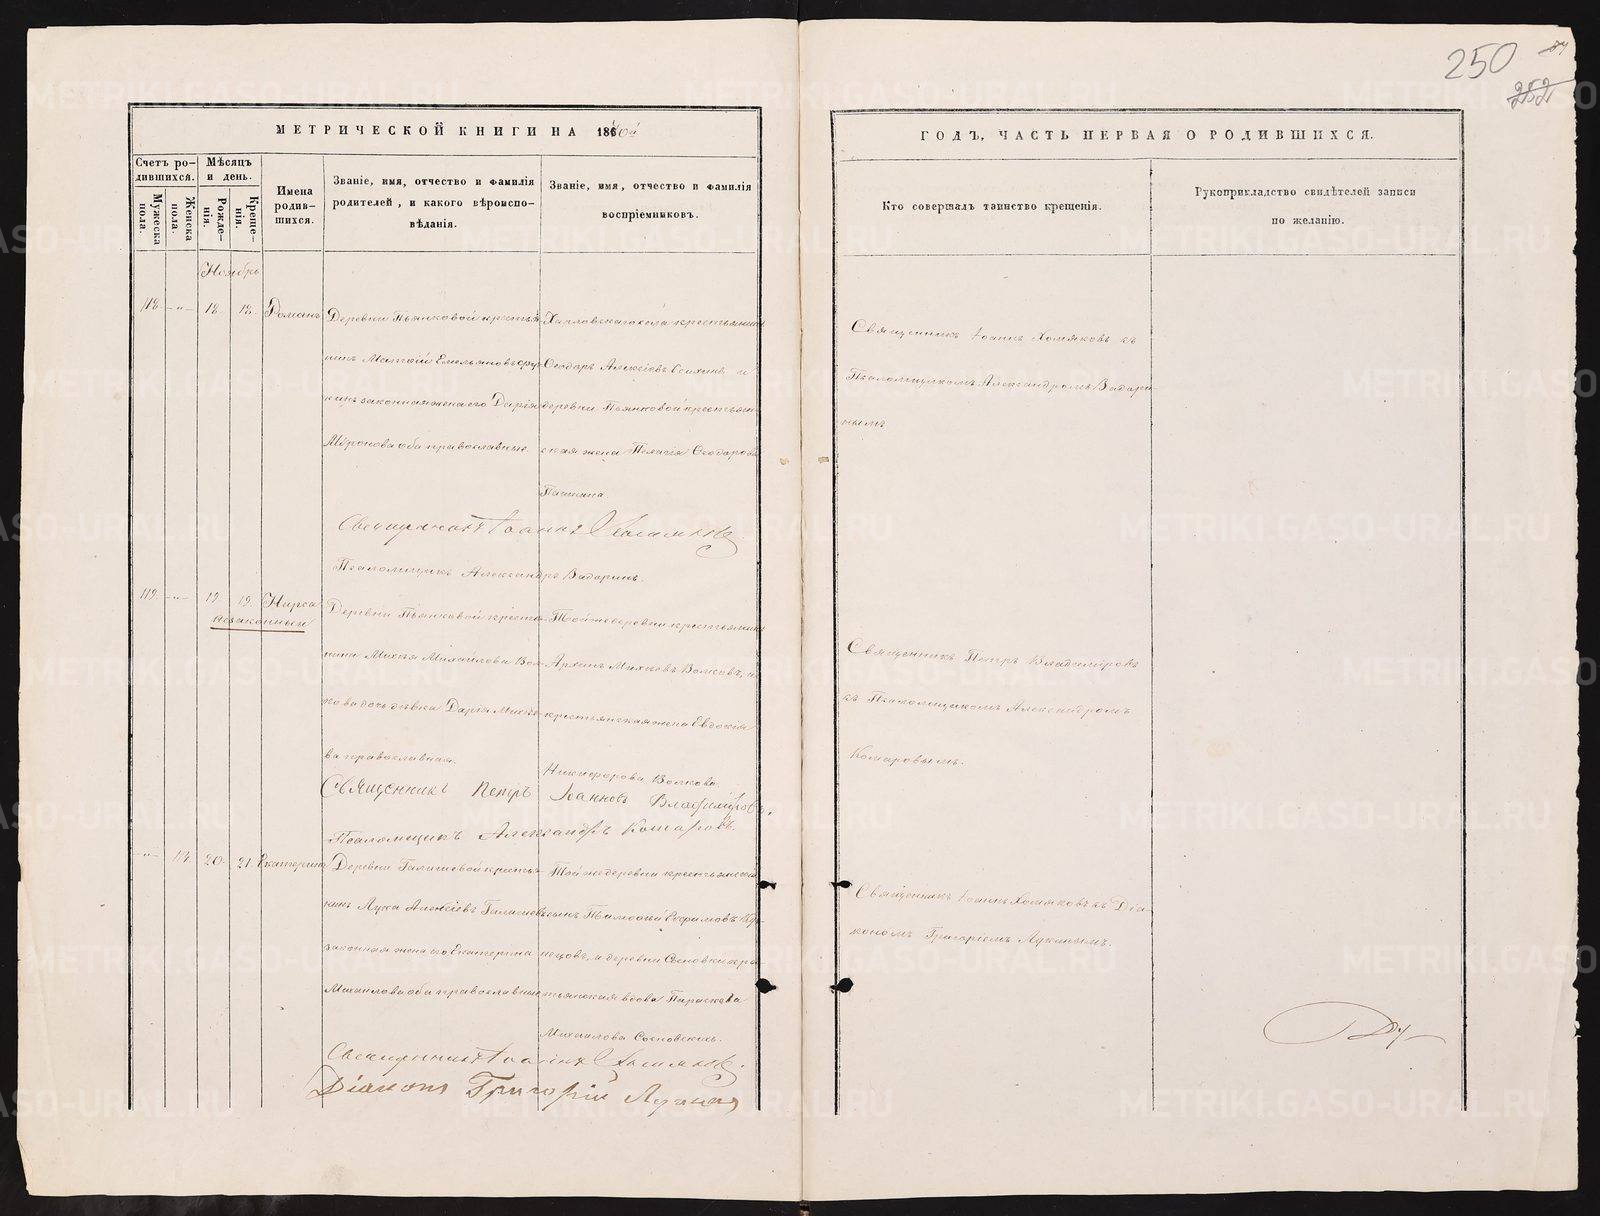 250
252
МЕТРИЧЕСКОЙ КНИГИ НА 1870й
ГОДЪ, ЧАСТЬ ПЕРВАЯ О РОДИВШИХСЯ.
Счетъ ро-
дившихся.
Мужеска
пола.
Женска
пола.
Мѣсяцъ
и день.
Рожде-
нія.
Креще-
нія.
Имена
родив-
шихся.
Званіе, имя, отчество и фамилія
родителей, и какого вѣроиспо-
вѣданія.
Званіе, имя, отчество и фамилія
воспріемниковъ.
Кто совершалъ таинство крещенія.
Рукоприкладство свидѣтелей записи
по желанію.
Ноябрь
118 -"- 18 18 Романъ
Деревни Пьянковой крестья-
нинъ Матѳій Емельяновъ
кинъ законная жена его Дарія
Миронова оба православные.
Харловскаго села крестьянинъ
Ѳеодоръ Алексіевъ и
деревни Пьянковой крестьян-
ская жена Пелагія Ѳеодорова
Священникъ Іоаннъ Хомяковъ
Псаломщикъ Александръ
Священникъ Іоаннъ Хомяковъ съ
Псаломщикомъ Александромъ
нымъ
119 -"- 19 19 Кирса
незаконный
Деревни Пьянковой кресть-
нина Михея Михайлова Вол-
кова дочь дѣвка Дарія Михѣе-
ва православная.
Той же деревни крестьянинъ
Архипъ Михеевъ Волковъ, и
крестьянская жена Евдокія
Никифорова Волкова.
Священникъ Петръ Іоанновъ Владиміровъ,
Псаломщикъ Александръ Комаровъ.
Священникъ Петръ Владиміровъ
съ Псаломщикомъ Александромъ
Комаровымъ.
-"- 20 21 Екатерина
Деревни Галишевой кресть-
нинъ Лука Алексіевъ Галишевъ
законная жена его Екатерина
Михаилова оба православные
Той же деревни крестьянской
сынъ Тимоѳей Ефимовъ Куз-
нецовъ, и деревни Сосновки кре
стьянская вдова Параскева
Михаилова Сосновскихъ.
Священникъ Іоаннъ Хомяковъ.
Діаконъ Григорій Лукинъ
Священникъ Іоаннъ Хомяковъ съ Діа-
кономъ Григоріемъ Лукинымъ.
METRIKI.GASO-URAL.RU